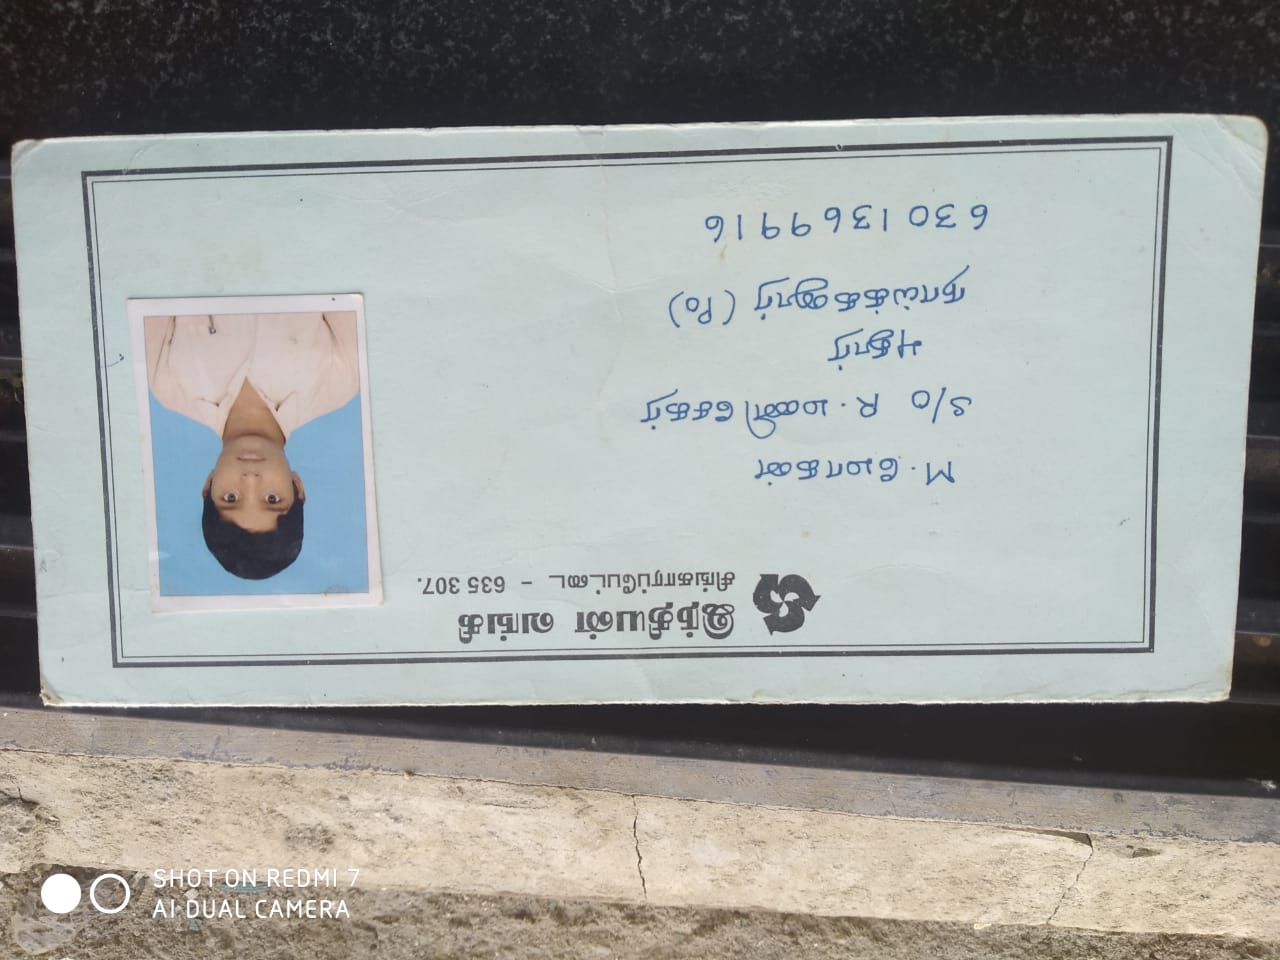 இந்தியன் வங்கி
சிங்காரப்பேட்டை - 635 307.
M. மோகன்
S/o R. மணிசேகர்
புதூர்
நாய்க்கனூர் (Po)
6301369916
SHOT ON REDMI 7
AI DUAL CAMERA